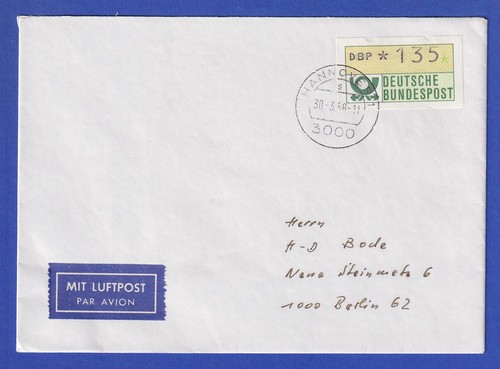 DBP * 135 *
DEUTSCHE
BUNDESPOST
HANNOVER 1
s
3000
Herrn
H-D Bode
6
1000 Berlin 62
MIT LUFTPOST
PAR AVION